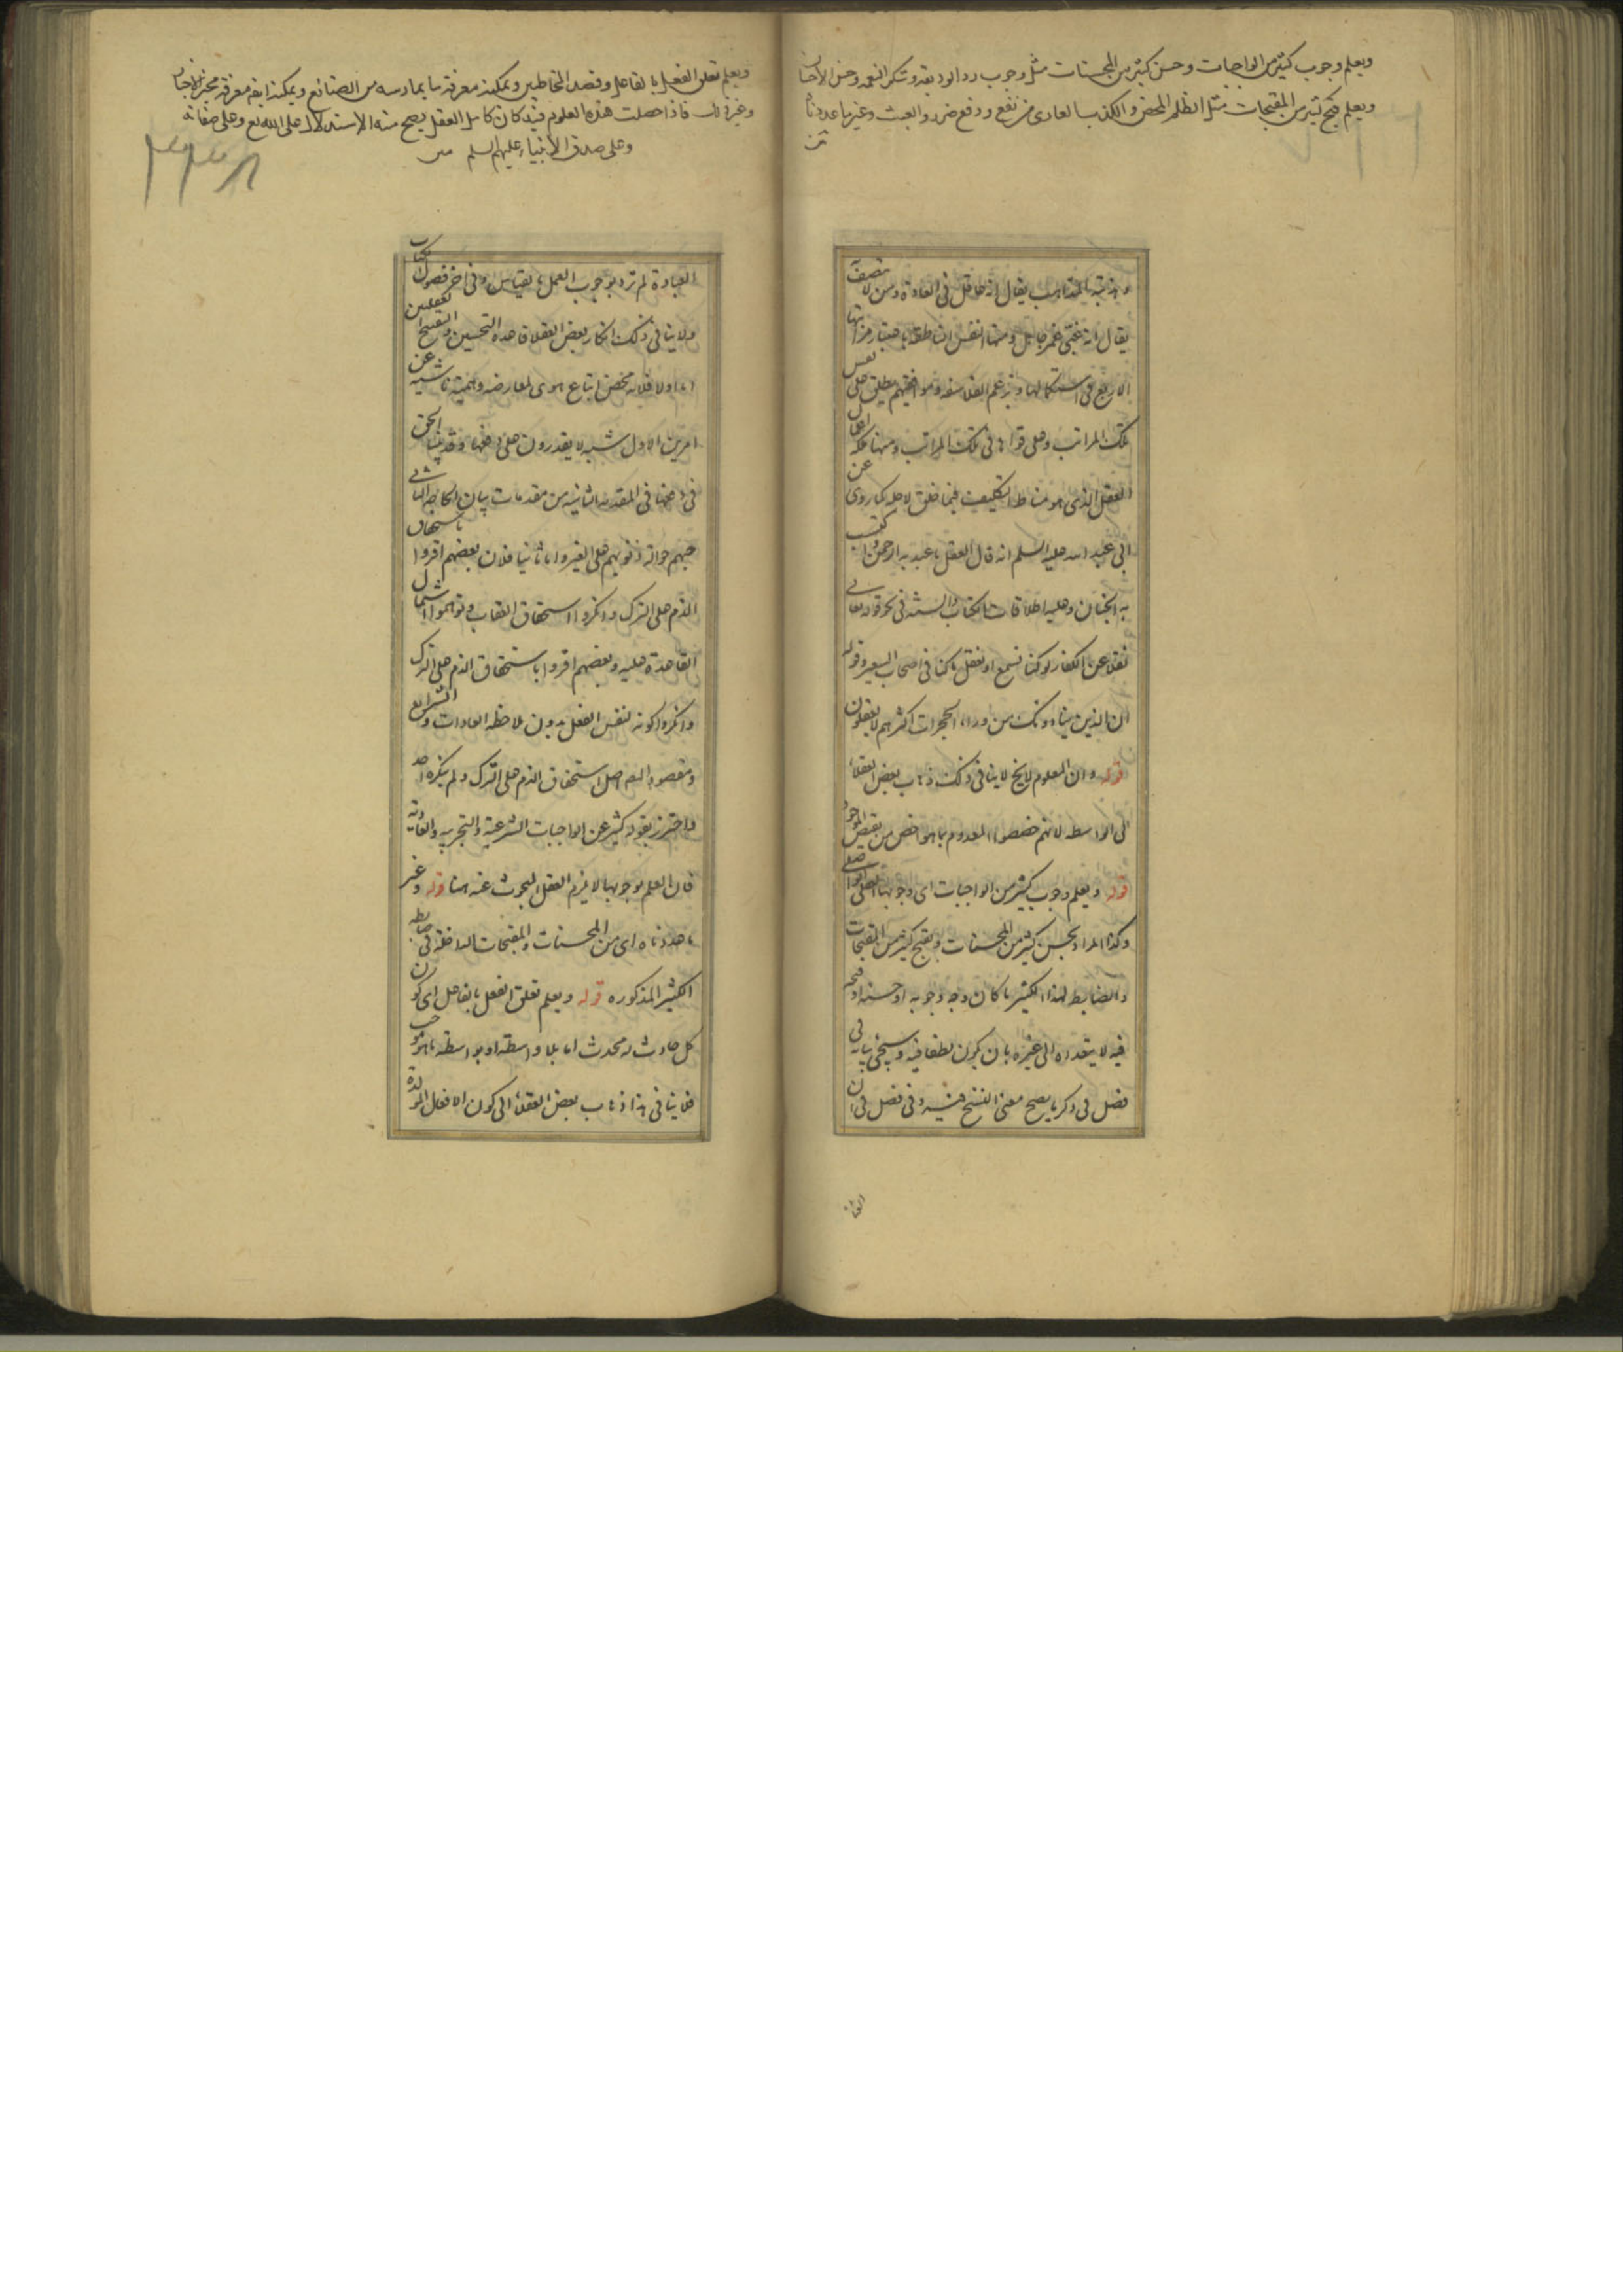 ويعلم وجوب كثير من الواجبات وحسن كثير من المحسنات مثل وجوب رد الوديعة وشكر النعمة وحسن الاحسان
ويعلم قبح كثير من المقبحات مثل الظلم المحض والكذب العارى من نفع ودفع ضرر والعبث وغيرها عددناه
متن
يقال انه عاقل فى العادة ومن لا يتصف
يقال انه غبى غمر جاهل ومنها النفس الناطقة باعتبار مراتبها
الاربع فى استكمالها وبزعم الفلاسفة وموافقيهم يطلق على نفس
تلك المراتب وعلى قواها فى تلك المراتب ومنها
العقل الذى هو مناط التكليف فيما خلق لاجله كما روى عن
ابى عبد الله عليه السلم انه قال العقل ما عبد به الرحمن واكتسب
به الجنان وعليه اطلاقات الكتاب والسنة فى نحو قوله تعالى
نقلا عن الكفار لو كنا نسمع او نعقل ما كنا فى اصحاب السعير وقوله
ان الذين ينادونك من وراء الحجرات اكثرهم لا يعقلون
قوله وان المعلوم لا يخ لا ينافى ذلك ذهاب بعض العقلاء
الى الواسطة لانهم خصصوا المعدوم بما هو اخص من نقيض الموجود
قوله ويعلم وجوب كثير من الواجبات اى وجوبها العقلى
وكذا المراد بحسن كثير من المحسنات وبقبح كثير من المقبحات
والضابط لهذا الكثير ما كان وجه وجوبه او حسنه او قبحه
فيه لا يتعداه الى غيره بان يكون لطفا فيه وسيجئ بيانه فى
فصل فى ذكر ما يصح معنى النسخ فيه وفى فصل فى ان
ويعلم تعلق الفعل بالفاعل وقصد المخاطبين ويمكنه معرفة ما يمارسه من الصنائع ويمكنه ايضا معرفة مخبر الاخبار
وغير ذلك فاذا حصلت هذه العلوم فيه كان كامل العقل يصح منه الاستدلال على الله تع وعلى صفاته
وعلى صدق الانبياء عليهم السلم متن
العبادة لم ترد بوجوب العمل بالقياس وفى آخر فصول الكتاب
ولا ينافى ذلك انكار بعض العقلاء قاعدة التحسين والتقبيح العقليين
اما اولا فلانه محض اتباع هوى لمعارضة وهمية ناشية عن
امرين الاول شبه لا يقدرون على دفعها وقد بينا الحق
فى دفعها فى المقدمة الثانية من مقدمات بيان الثانى
حبهم حوالة ذنوبهم على الغير واما ثانيا فلان بعضهم اقروا باستحقاق
الذم على الترك وانكروا استحقاق العقاب وتوهموا اشتمال
القاعدة عليه وبعضهم اقروا باستحقاق الذم على الترك
وانكروا كونه لنفس الفعل بدون ملاحظة العادات والشرايع
ومقصود المص اصل استحقاق الذم على الترك ولم ينكره احد
واحترز بقوله كثير عن الواجبات الشرعية والتجربية والعادية
فان العلم بوجوبها لا يلزم العقل المبحوث عنه هنا قوله وغير
ما عددناه اى من المحسنات والمقبحات الداخلة فى ضابطة
الكثير المذكورة قوله ويعلم تعلق الفعل بالفاعل اى كون
كل حادث له محدث اما بلا واسطة او بواسطة
فلا ينافى هذا ذهاب بعض العقلاء الى كون الافعال المولدة